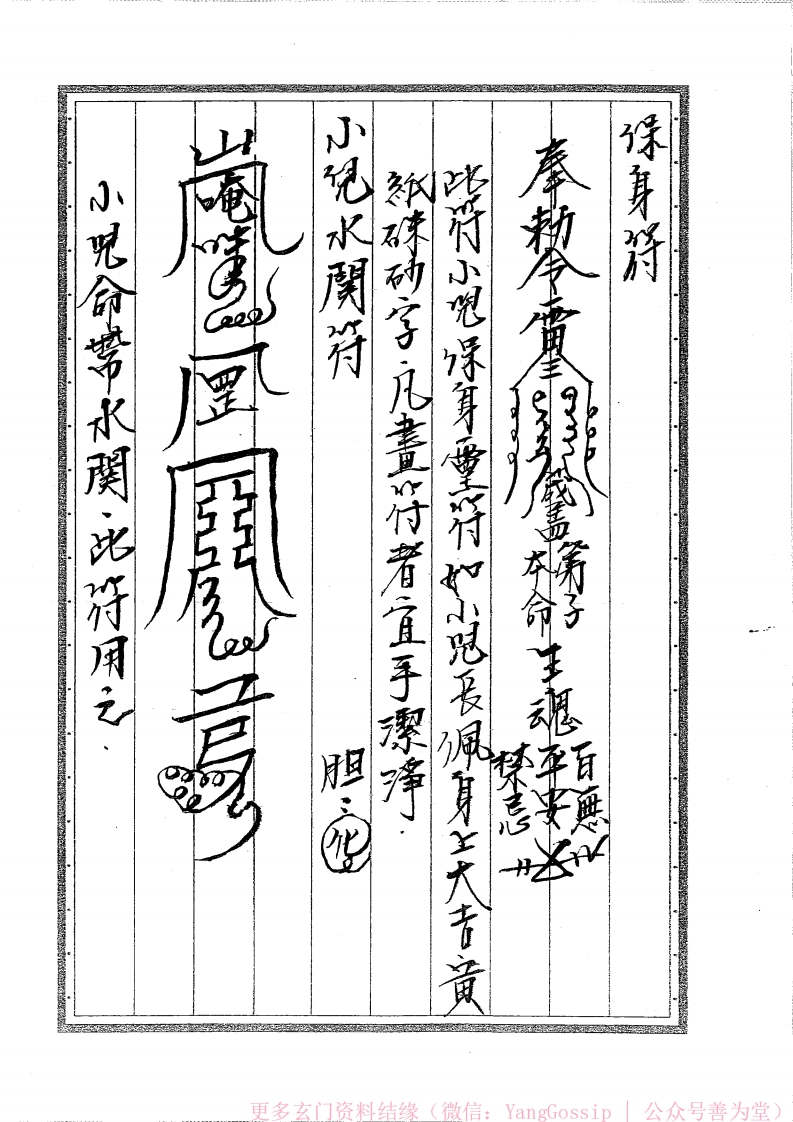 保身符
奉勅令雷 蓋 弟子 本命 生魂 平安 百無 禁忌
此符小児保身靈符如小児長佩身上大吉黄
紙硃砂字凢畫符者宜手潔淨.
小児水関符
胆
罡
小児命帶水関、此符用之.
更多玄门资料结缘（微信：YangGossip | 公众号善为堂）